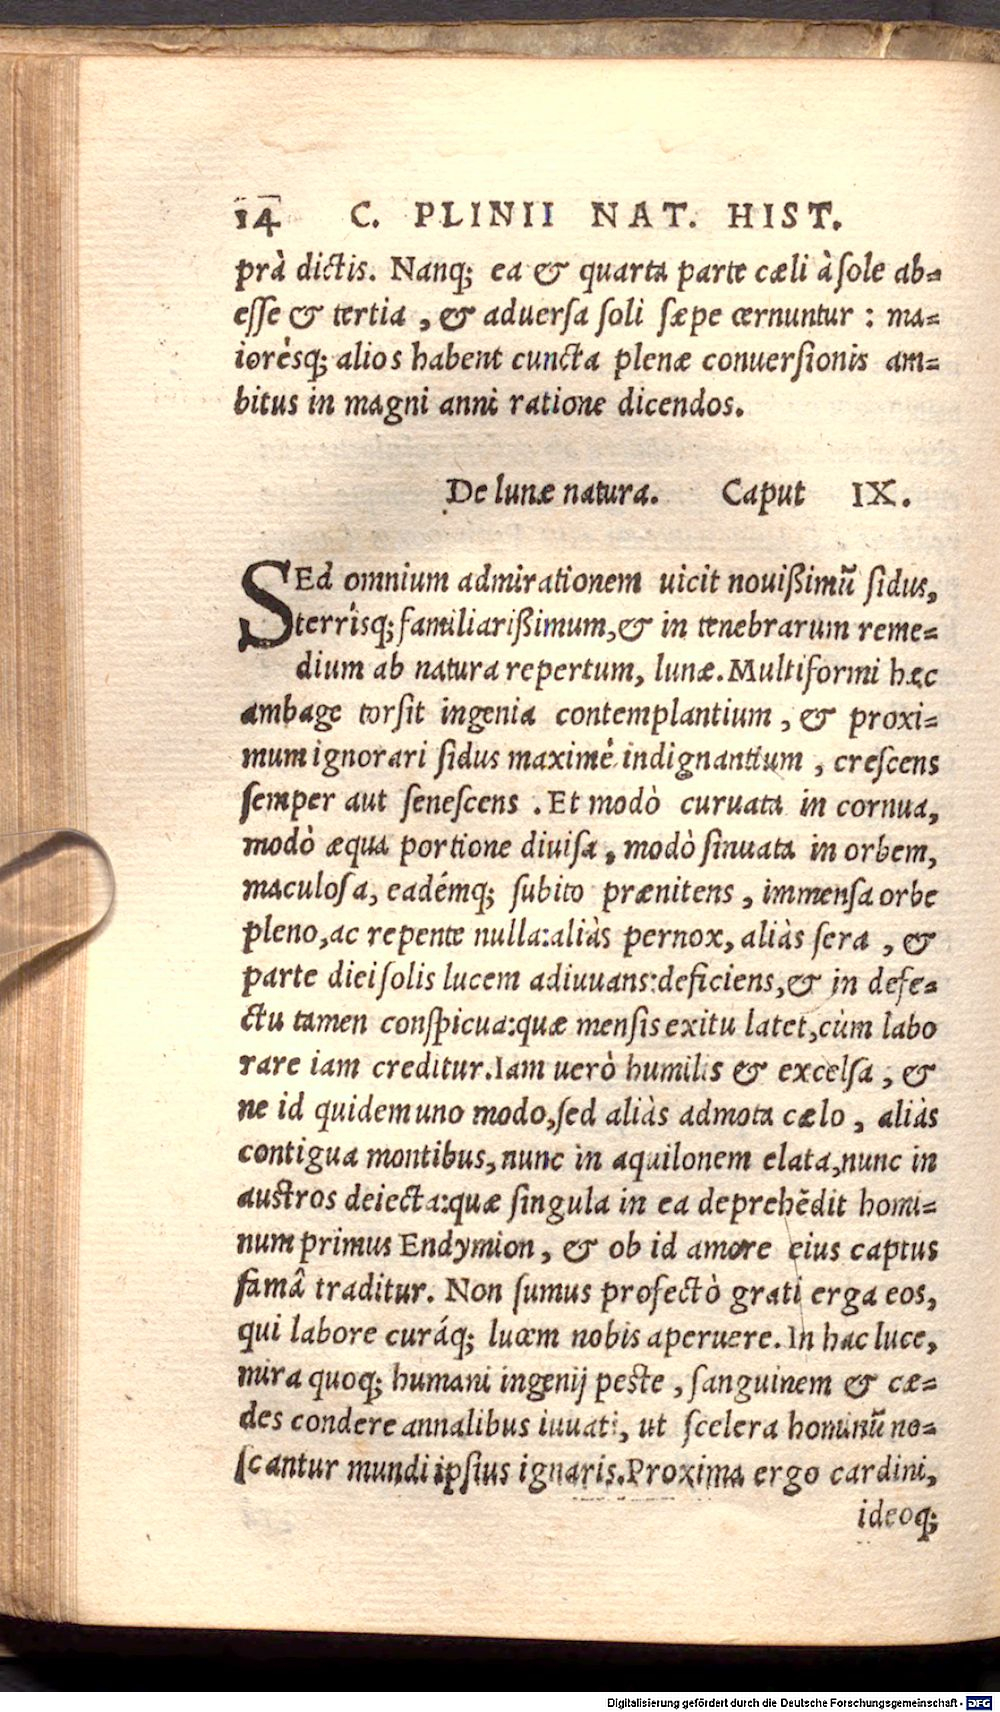 14 C. PLINII NAT. HIST.
prà dictis. Nanq; ea & quarta parte cæli à sole ab-
esse & tertia, & aduersa soli sæpe cernuntur: ma-
iorésq; alios habent cuncta plenæ conuersionis am-
bitus in magni anni ratione dicendos.
De lunæ natura. Caput IX.
SEd omnium admirationem uicit nouißimū sidus,
terrísq; familiarißimum, & in tenebrarum reme-
dium ab natura repertum, lunæ. Multiformi hæc
ambage torsit ingenia contemplantium, & proxi-
mum ignorari sidus maximè indignantium, crescens
semper aut senescens. Et modò curuata in cornua,
modò æqua portione diuisa, modò sinuata in orbem,
maculosa, eadémq; subito prænitens, immensa orbe
pleno, ac repente nulla: aliàs pernox, aliàs sera, &
parte diei solis lucem adiuuans: deficiens, & in defe-
ctu tamen conspicua: quæ mensis exitu latet, cùm labo
rare iam creditur. Iam uerò humilis & excelsa, &
ne id quidem uno modo, sed aliàs admota cælo, aliàs
contigua montibus, nunc in aquilonem elata, nunc in
austros deiecta: quæ singula in ea deprehēdit homi-
num primus Endymion, & ob id amore eius captus
famâ traditur. Non sumus profectò grati erga eos,
qui labore curáq; lucem nobis aperuere. In hac luce,
mira quoq; humani ingenij peste, sanguinem & cæ-
des condere annalibus iuuat, ut scelera hominū no-
scantur mundi ipsius ignaris. Proxima ergo cardini,
ideoq;
Digitalisierung gefördert durch die Deutsche Forschungsgemeinschaft - DFG